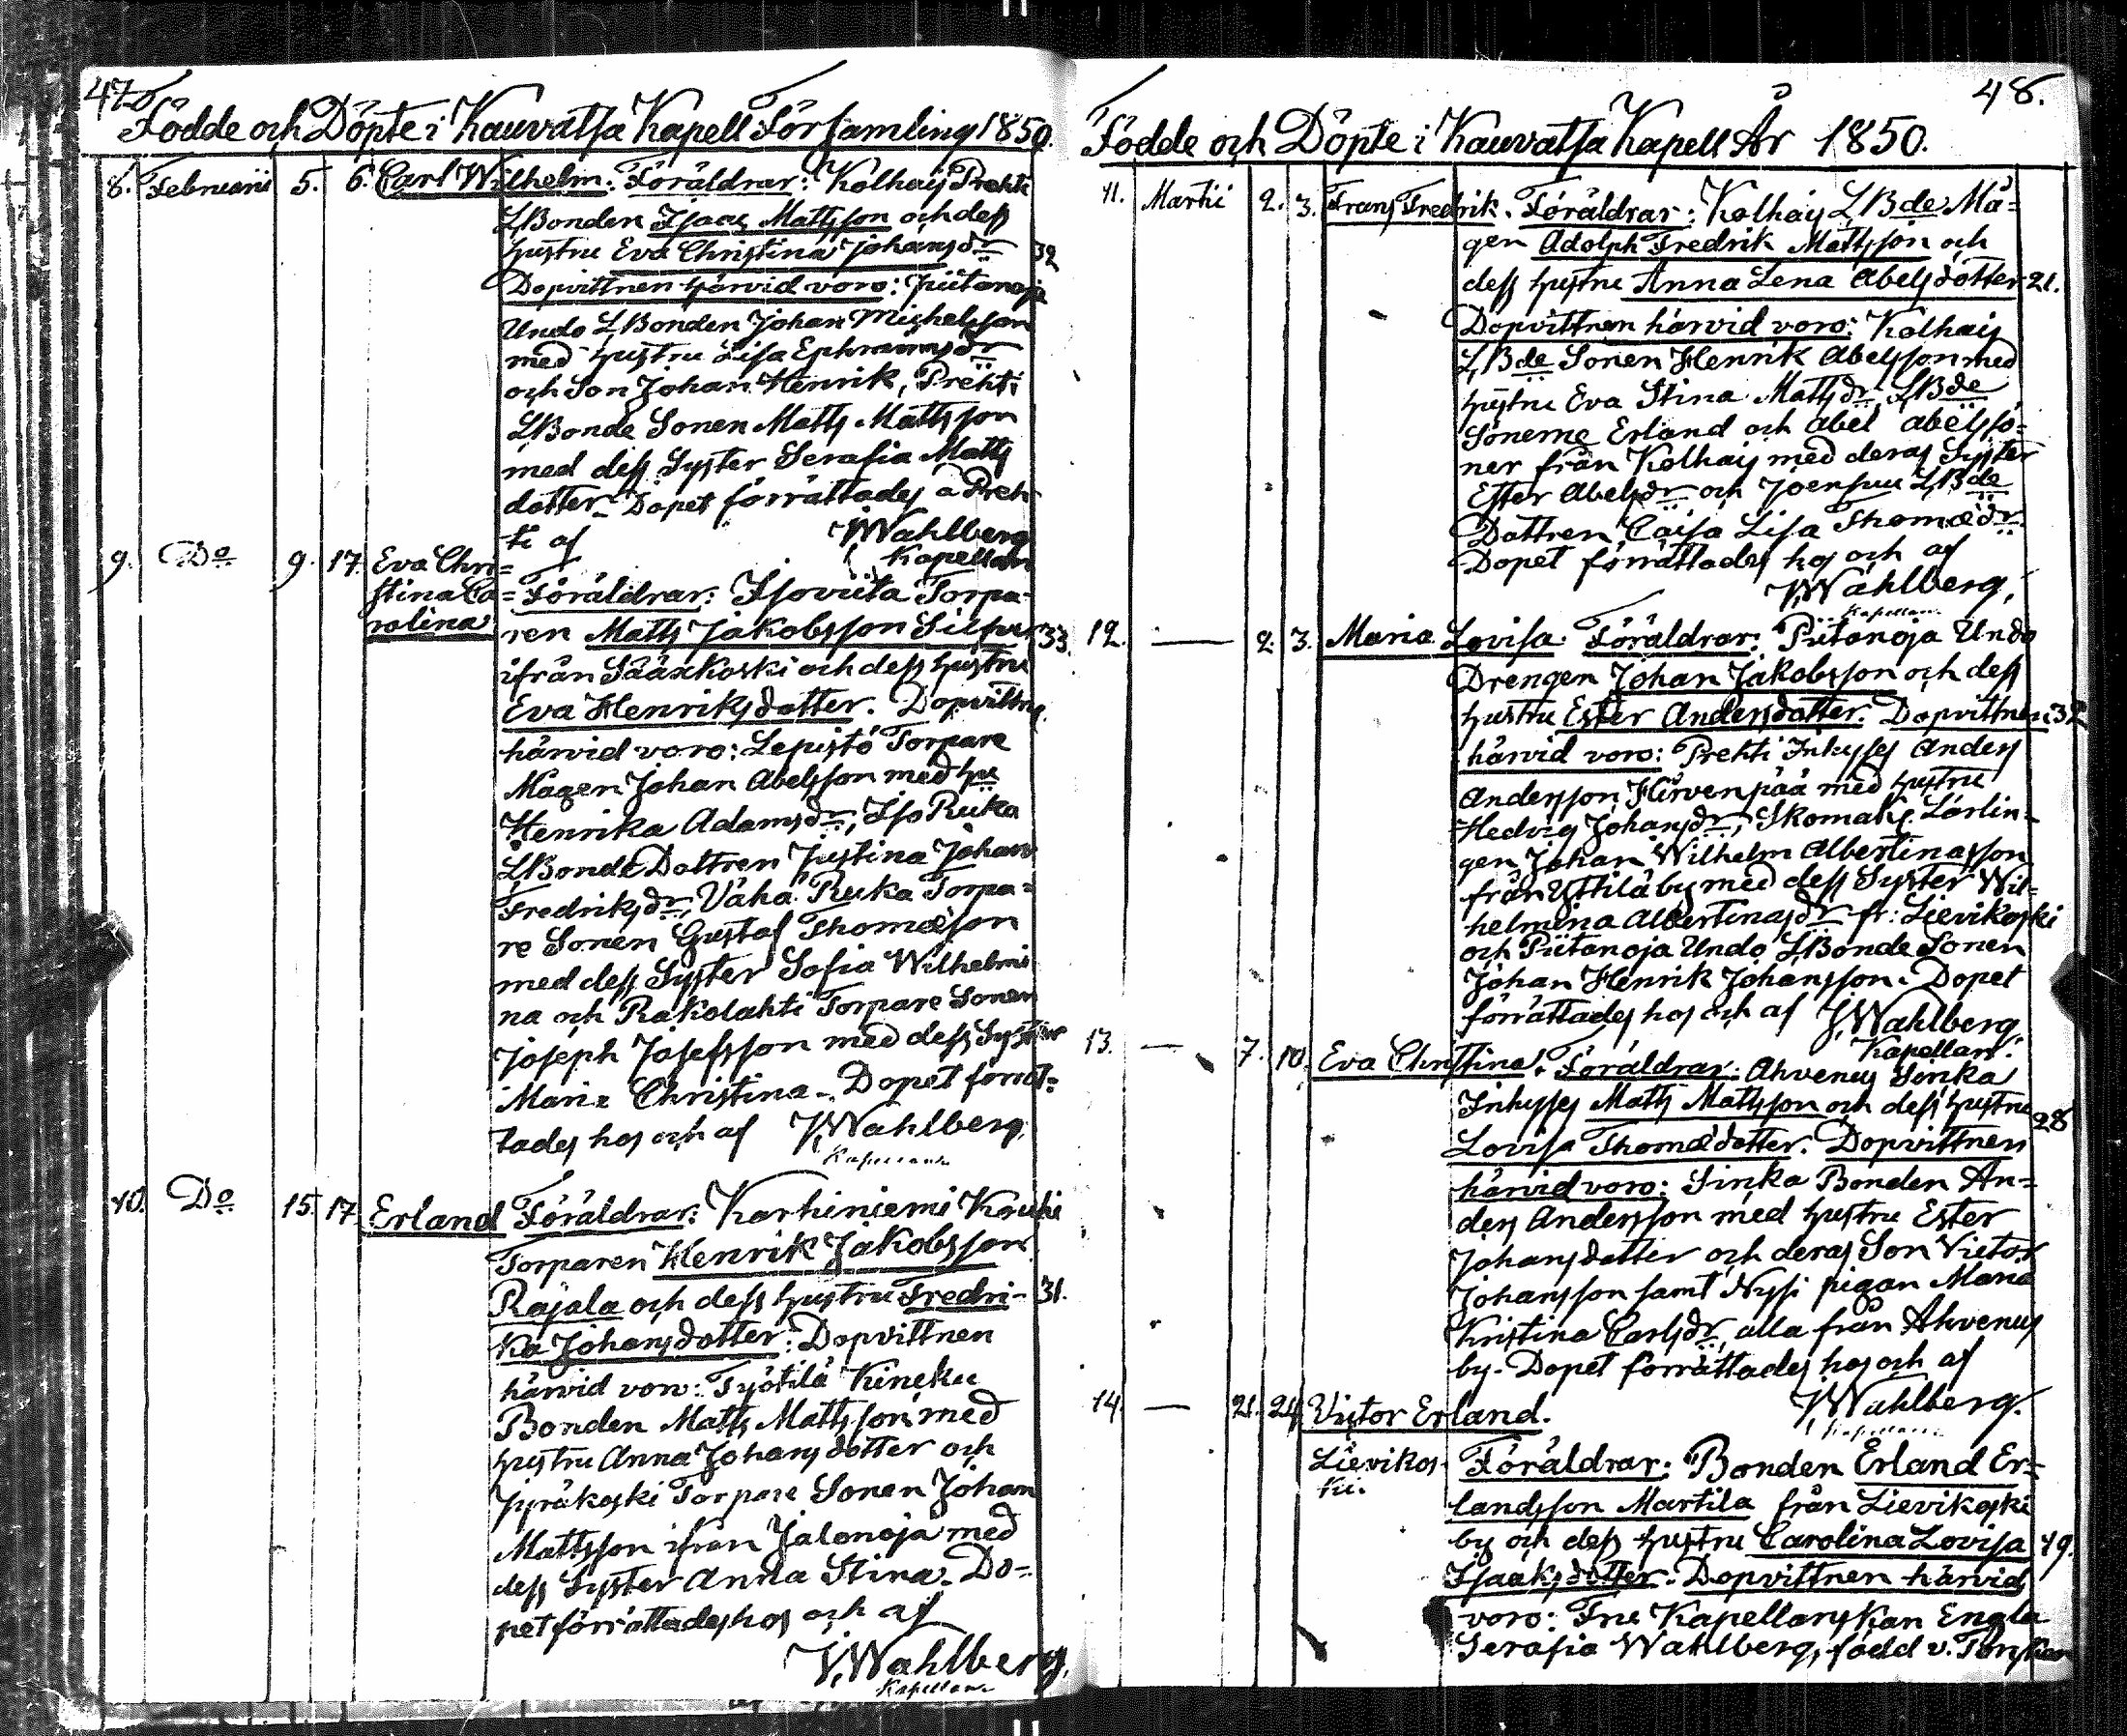 47.
Födde och Döpte i Kauvatsa Kapell Församling 1850.
8. Februarii 5. 6. Carl Wilhelm. Föräldrar: Kolhais Prehti
LBonden Isaac Mattsson och dess
hustru Eva Christina Johansdr 32
Dopvittnen härvid voro: Piitanoja
Undo LBonden Johan Michelsson
med hustru Lisa Ephraimsdr
och Son Johan Henrik, Prehti
LBonde Sonen Matts Mattsson
med dess Syster Serafia Matts
dotter. Dopet förrättades å Preh-
ti af JWahlberg
Kapellan
9. Do 9. 17. Eva Chri-
stina Ca- Föräldrar: Isoviita Torpa-
rolina ren Matts Jakobsson 33.
ifrån Sääxkoski och dess hustru
Eva Henriksdotter. Dopvittne
härvid voro: Lepistö Torpare
Mågen Johan Abelsson med hu
Henrika Adamsdr, Iso Ruka
LBonde Dottren Justina Johan
Fredriksdr, Vähä Ruka Torpa-
re Sonen Gustaf Thomæson
med dess Syster Sofia Wilhelmi
na och Rakolahti Torpare Sonen
Joseph Josefsson med dess Syster
Maria Christina. Dopet förrät-
tades hos och af JWahlberg
Kapellan
10. Do 15. 17. Erland Föräldrar: Karhiniemi Kouhi
Torparen Henrik Jakobsson
Rajala och dess hustru Fredri- 31.
ka Johansdotter: Dopvittnen
härvid voro: Työtilä Kineku
Bonden Matts Mattsson med
hustru Anna Johansdotter och
Jyräkoski Torpare Sonen Johan
Mattsson ifrån Jalonoja med
dess Syster Anna Stina. Do-
pet förrättades hos och af
J.Wahlberg.
Kapellan
48.
Födde och Döpte i Kauvatsa Kapell År 1850.
11. Martii 2. 3. Frans Fredrik. Föräldrar: Kolhais LBde Må-
gen Adolph Fredrik Mattsson och
dess hustru Anna Lena Abelsdotter 21.
Dopvittnen härvid voro: Kolhais
LBde Sonen Henrik Abelsson med
hustru Eva Stina Mattsdr, LBde
Sönerne Erland och Abel Abelssö-
ner från Kolhais med deras Syster
Ester Abelsdr och Joensuu LBde
Dottren Caisa Lisa Thomædr.
Dopet förrättades hos och af
JWahlberg,
Kapellan
12. — 2. 3. Maria Lovisa. Föräldrar: Piitanoja Undo
Drengen Johan Jakobsson och dess
hustru Ester Andersdotter. Dopvittnen 32
härvid voro: Prehti Inhyses Anders
Andersson Hirvenpää med hustru
Hedvig Johansdr, Skomaks Lärlin-
gen Johan Wilhelm Albertinasson
från Yttilä by med dess Syster Wil-
helmina Albertinasdr fr: Lievikoski
och Piitanoja Undo LBonde Sonen
Johan Henrik Johansson. Dopet
förrättades hos och af JWahlberg
Kapellan.
13. — 7. 10. Eva Christina. Föräldrar: Ahvenus Sinka
Inhyses Matts Mattsson och dess hustru 28
Lovisa Thomædotter. Dopvittnen
härvid voro: Sinka Bonden An-
ders Andersson med hustru Ester
Johansdotter och deras Son Victor
Johansson samt Nysi pigan Maria
Kristina Carlsdr, alla från Ahvenus
by. Dopet förrättades hos och af
JWahlberg.
Kapellan
14. — 21. 24. Victor Erland.
Lievikos- Föräldrar: Bonden Erland Er-
ki. landsson Martila från Lievikoski
by och dess hustru Carolina Lovisa 49.
Isaaksdotter: Dopvittnen härvid
voro: Fru Kapellanskan Engla
Serafia Wahlberg, född v.